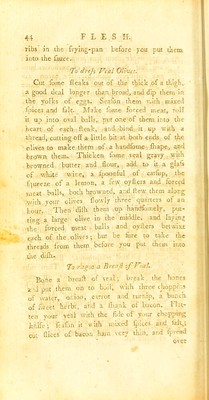 44 FLESH.
ribs in the frying-pan before you put them
into the sauce.
To dress Veal Olives.
Cut some steaks out of the thick of a thigh,
a good deal longer than broad, and dip them in
the yolks of eggs. Season them with mixed
spices and salt. Make some forced meat, roll
it up into oval balls, put one of them into the
heart of each steak, and bind it up with a
thread, cutting off a little bit at both ends of the
olives to make them of a handsome shape, and
brown them. Thicken some veal gravy with
browned butter and flour, add to it a glass
of white wine, a spoonful of catsup, the
squeeze of a lemon, a few oysters and forced
meat balls, both browned, and stew them along
with your olives slowly three quarters of an
hour. Then dish them up handsomely, put-
ting a large olive in the middle, and laying
the forced meat balls and oysters betwixt
each of the olives; but be sure to take the
threads from them before you put them into
the dish.
To ragoo a Breast of Veal.
Bone a breast of veal; break the bones
and put them on to boil, with three choppins
of water, onion, carrot and turnip, a bunch
of sweet herbs, and a shank of bacon. Flat-
ten your veal with the side of your chopping
knife; season it with mixed spices and salt;
cut slices of bacon ham very thin, and spread
over